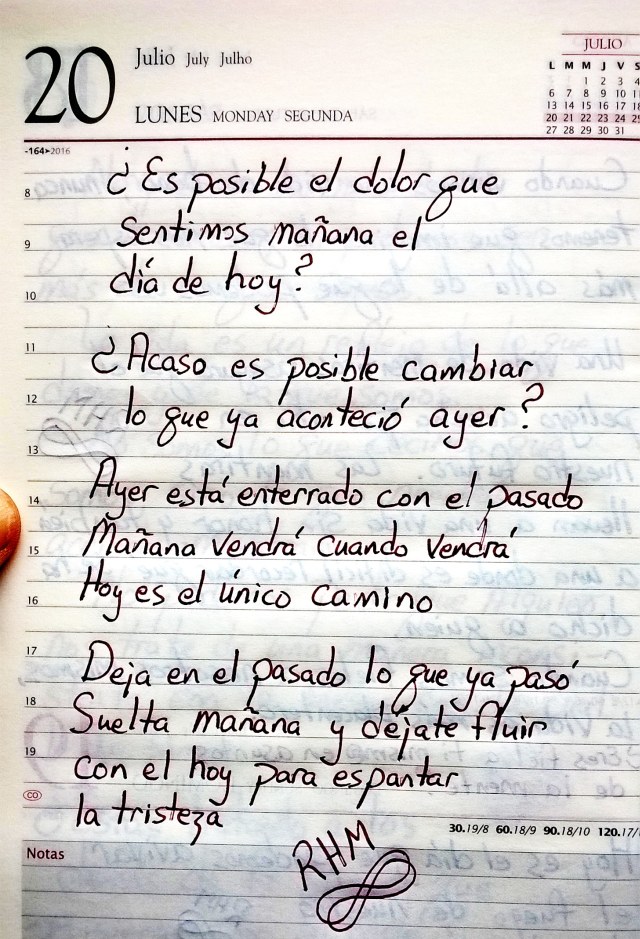 20
Julio July Julho
LUNES MONDAY SEGUNDA
JULIO
L M M J V S
1 2 3 4
6 7 8 9 10 11
13 14 15 16 17 18
20 21 22 23 24 25
27 28 29 30 31
-164>2016
8 ¿Es posible el dolor que
9 Sentimos mañana el
10 día de hoy?
11 ¿Acaso es posible cambiar
12 lo que ya aconteció ayer?
13
14 Ayer está enterrado con el pasado
15 Mañana Vendrá Cuando Vendrá
16 Hoy es el único Camino
17 Deja en el pasado lo que ya pasó
18 Suelta mañana y déjate fluir
19 Con el hoy para espantar
CO la tristeza
30.19/8 60.18/9 90.18/10 120.17/
Notas
RHM